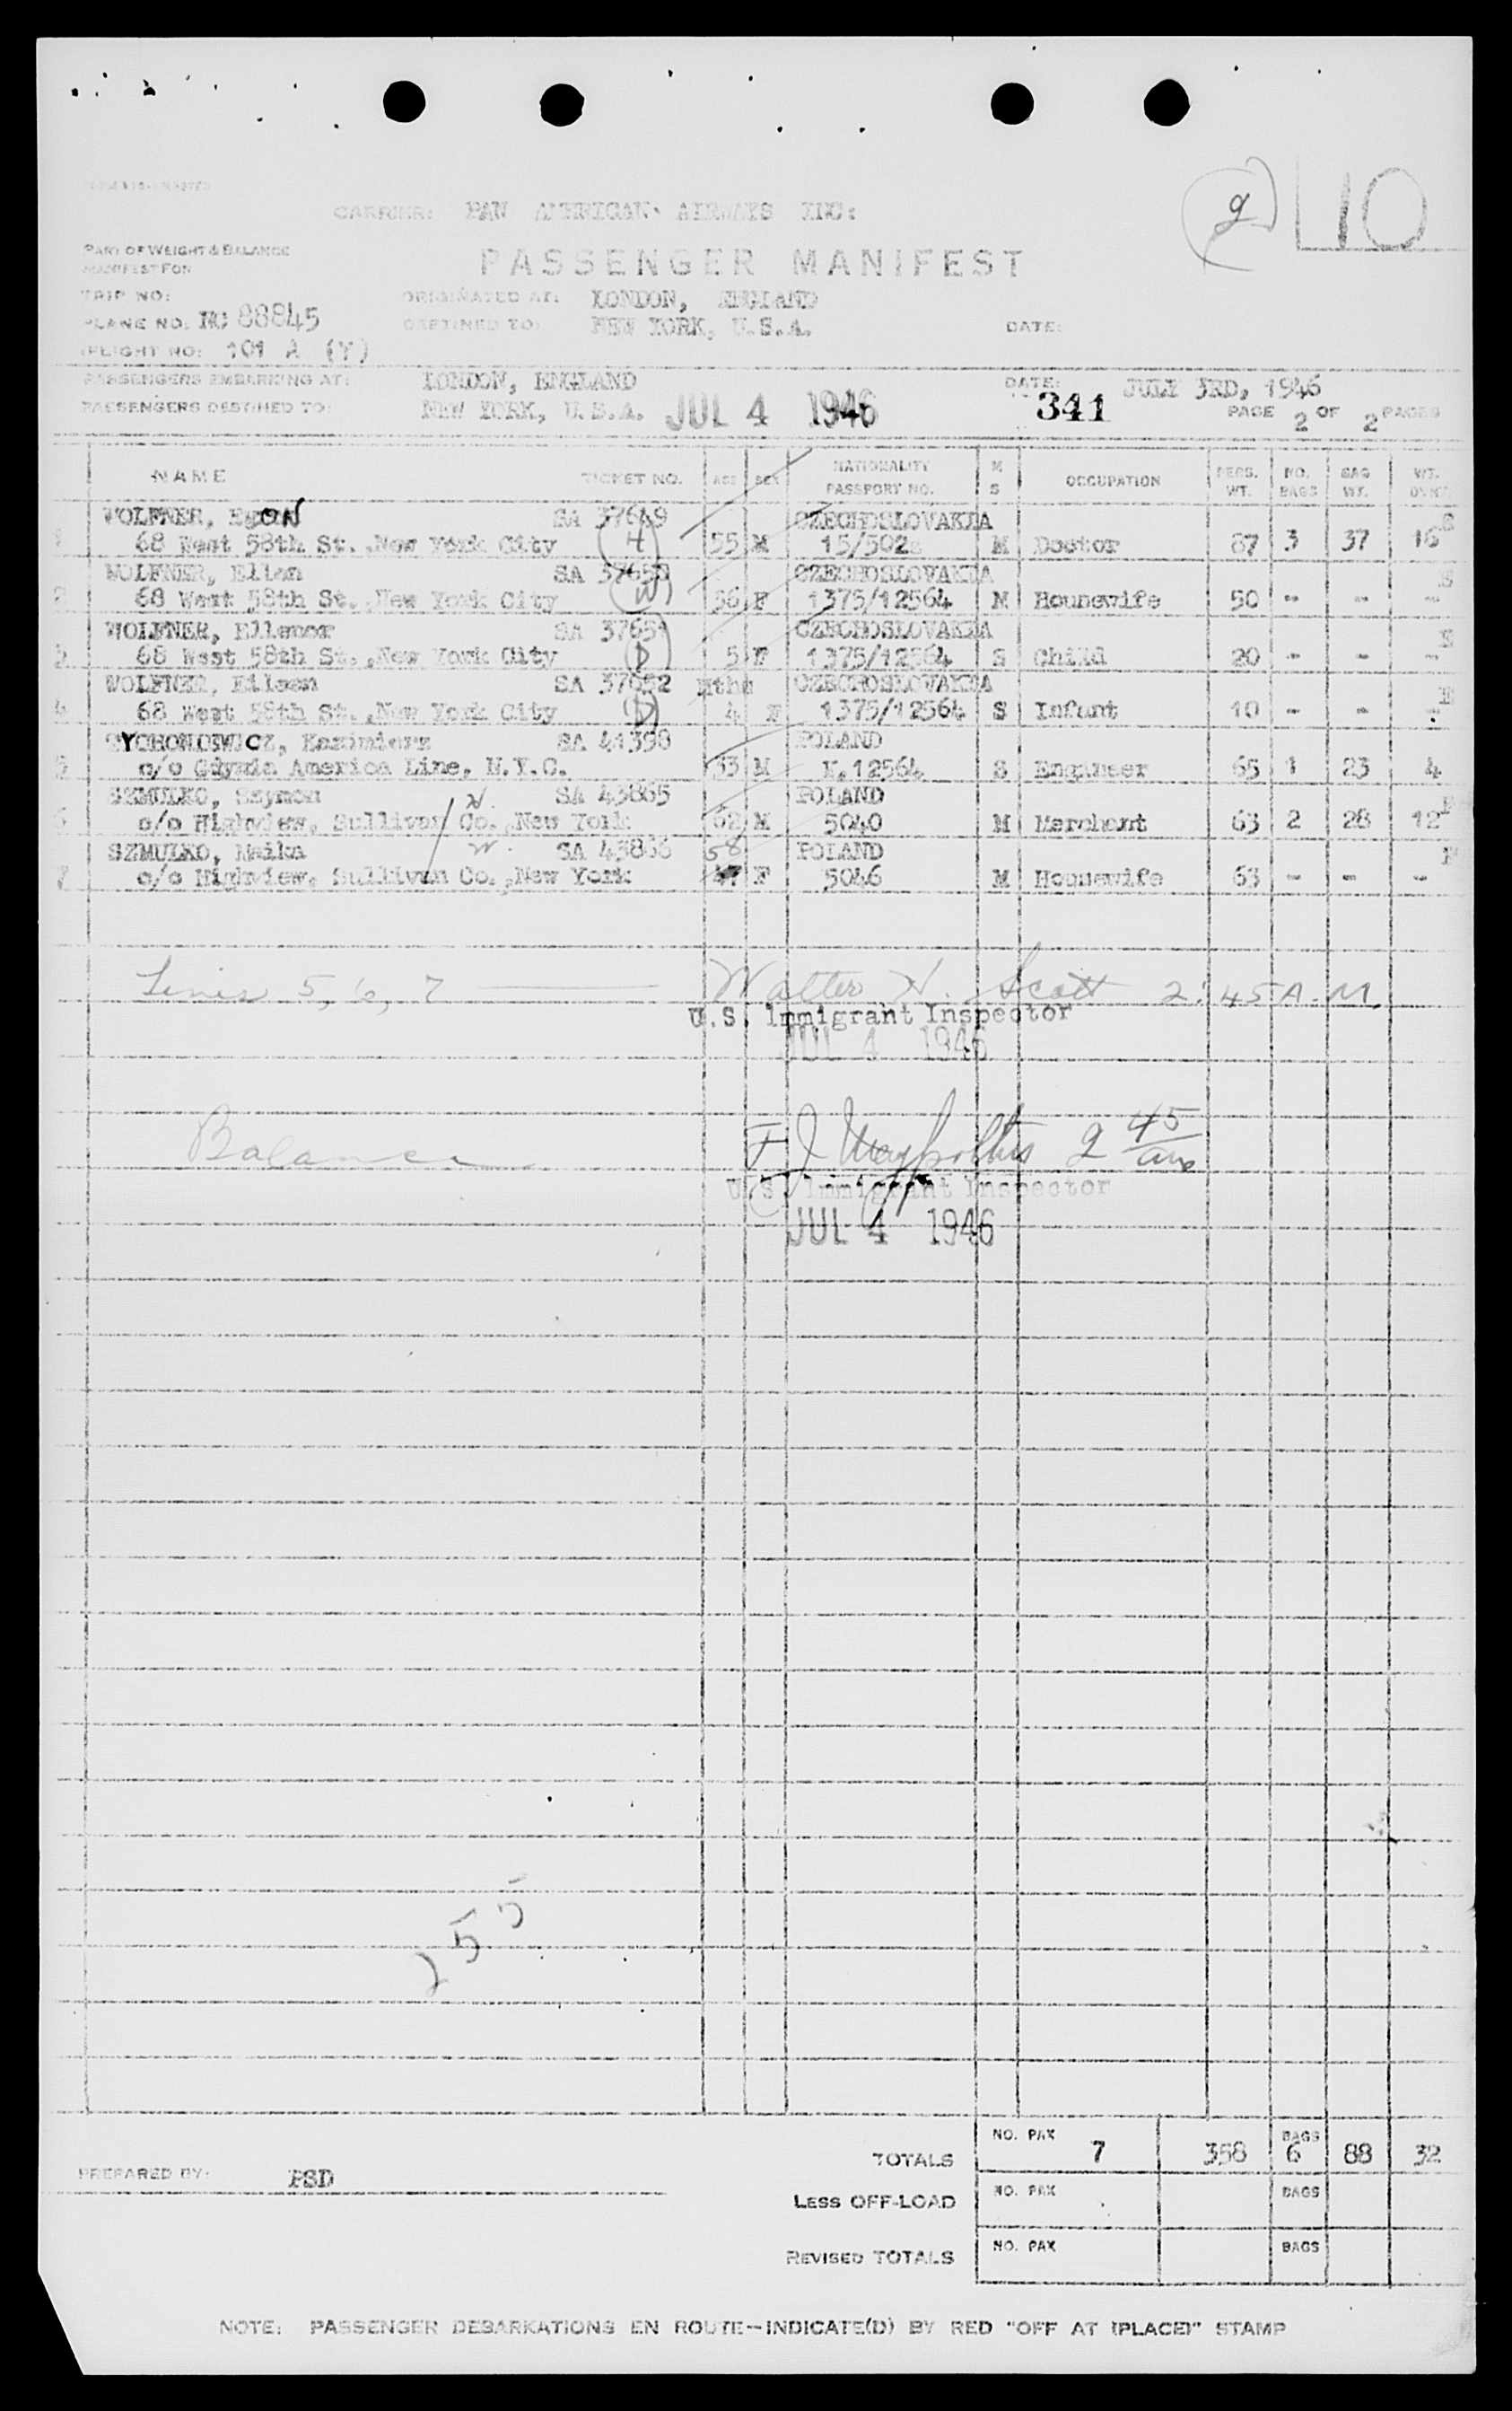 g 110
CARRIER: PAN AMERICAN AIRWAYS INC:
PART OF WEIGHT & BALANCE
MANIFEST FOR
PASSENGER MANIFEST
TRIP NO:
ORIGINATED AT: LONDON, ENGLAND
PLANE NO. NC 88845
DESTINED TO: NEW YORK, U.S.A.
DATE:
FLIGHT NO: 101 A (Y)
PASSENGERS EMBARKING AT: LONDON, ENGLAND
DATE: JULY 3RD, 1946
PASSENGERS DESTINED TO: NEW YORK, U.S.A. JUL 4 1946 341 PAGE 2 OF 2 PAGES
NAME TICKET NO. AGE SEX NATIONALITY PASSPORT NO. M S OCCUPATION PERS. WT. NO. BAGS BAG WT. WT. OVWT.
WOLFNER, EGON SA 37649 CZECHOSLOVAKIA
1 68 West 58th St.,New York City (H) 55 M 15/502 M Doctor 87 3 37 16
WOLFNER, SA 37650 CZECHOSLOVAKIA
2 68 West 58th St.,New York City (W) 36 F 1375/12564 M Housewife 50 - - -
WOLFNER, Ellenor SA 37651 CZECHOSLOVAKIA
3 68 West 58th St.,New York City (D) 5 F 1375/12564 S Child 20 - - -
WOLFNER, Eileen SA 37652 Mths CZECHOSLOVAKIA
4 68 West 58th St.,New York City (D) 4 F 1375/12564 S Infant 10 - - -
Kazimierz SA 41398 POLAND
5 c/o Gdynia America Line, N.Y.C. 33 M 12564 S Engineer 65 1 23 4
SZMULKO, Szymon SA 43865 POLAND
6 c/o Highview, Sullivan Co.,New York H. 62 M 5040 M Merchant 63 2 28 12
SZMULKO, SA 43866 58 POLAND
7 c/o Highview, Sullivan Co.,New York W. F 5046 M Housewife 63 - - -
Lines 5, 6, 7 Walter H. Scott 2:45 A.M.
U.S. Immigrant Inspector
JUL 4 1946
Balance F J 2 45 am
U.S. Immigrant Inspector
JUL 4 1946
255
TOTALS NO. PAX 7 358 BAGS 6 88 32
PREPARED BY: PSD
LESS OFF-LOAD NO. PAX BAGS
REVISED TOTALS NO. PAX BAGS
NOTE: PASSENGER DEBARKATIONS EN ROUTE—INDICATE(D) BY RED "OFF AT (PLACE)" STAMP